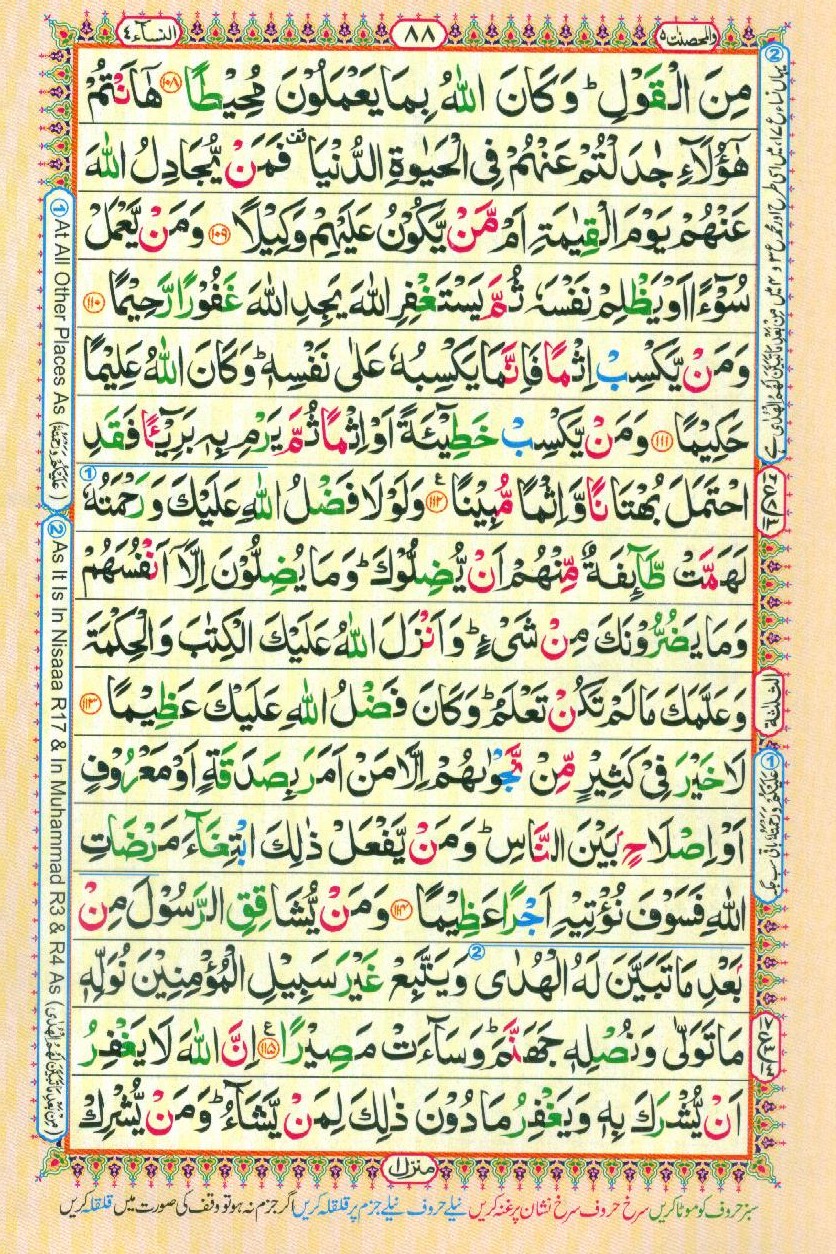 والمحصنت ۵
۸۸
النسآء ۴
مِنَ الْقَوْلِ ؕ وَكَانَ اللّٰهُ بِمَا يَعْمَلُوْنَ مُحِيْطًا ﴿۱۰۸﴾ هٰۤاَنْتُمْ
هٰۤؤُلَآءِ جٰدَلْتُمْ عَنْهُمْ فِى الْحَيٰوةِ الدُّنْيَا ۫ فَمَنْ يُّجَادِلُ اللّٰهَ
عَنْهُمْ يَوْمَ الْقِيٰمَةِ اَمْ مَّنْ يَّكُوْنُ عَلَيْهِمْ وَكِيْلًا ﴿۱۰۹﴾ وَمَنْ يَّعْمَلْ
سُوْٓءًا اَوْ يَظْلِمْ نَفْسَهٗ ثُمَّ يَسْتَغْفِرِ اللّٰهَ يَجِدِ اللّٰهَ غَفُوْرًا رَّحِيْمًا ﴿۱۱۰﴾
وَمَنْ يَّكْسِبْ اِثْمًا فَاِنَّمَا يَكْسِبُهٗ عَلٰى نَفْسِهٖ ؕ وَكَانَ اللّٰهُ عَلِيْمًا
حَكِيْمًا ﴿۱۱۱﴾ وَمَنْ يَّكْسِبْ خَطِيْٓئَةً اَوْ اِثْمًا ثُمَّ يَرْمِ بِهٖ بَرِيْٓئًا فَقَدِ
احْتَمَلَ بُهْتَانًا وَّاِثْمًا مُّبِيْنًا ﴿۱۱۲﴾ ع وَلَوْلَا فَضْلُ اللّٰهِ عَلَيْكَ وَرَحْمَتُهٗ ①
لَهَمَّتْ طَّآئِفَةٌ مِّنْهُمْ اَنْ يُّضِلُّوْكَ ؕ وَمَا يُضِلُّوْنَ اِلَّاۤ اَنْفُسَهُمْ
وَمَا يَضُرُّوْنَكَ مِنْ شَىْءٍ ؕ وَاَنْزَلَ اللّٰهُ عَلَيْكَ الْكِتٰبَ وَالْحِكْمَةَ
وَعَلَّمَكَ مَا لَمْ تَكُنْ تَعْلَمُ ؕ وَكَانَ فَضْلُ اللّٰهِ عَلَيْكَ عَظِيْمًا ﴿۱۱۳﴾
لَا خَيْرَ فِىْ كَثِيْرٍ مِّنْ نَّجْوٰىهُمْ اِلَّا مَنْ اَمَرَ بِصَدَقَةٍ اَوْ مَعْرُوْفٍ
اَوْ اِصْلَاحٍۭ بَيْنَ النَّاسِ ؕ وَمَنْ يَّفْعَلْ ذٰلِكَ ابْتِغَآءَ مَرْضَاتِ
اللّٰهِ فَسَوْفَ نُؤْتِيْهِ اَجْرًا عَظِيْمًا ﴿۱۱۴﴾ وَمَنْ يُّشَاقِقِ الرَّسُوْلَ مِنْۢ
بَعْدِ مَا تَبَيَّنَ لَهُ الْهُدٰى ② وَيَتَّبِعْ غَيْرَ سَبِيْلِ الْمُؤْمِنِيْنَ نُوَلِّهٖ
مَا تَوَلّٰى وَنُصْلِهٖ جَهَنَّمَ ؕ وَسَآءَتْ مَصِيْرًا ﴿۱۱۵﴾ ع اِنَّ اللّٰهَ لَا يَغْفِرُ
اَنْ يُّشْرَكَ بِهٖ وَيَغْفِرُ مَا دُوْنَ ذٰلِكَ لِمَنْ يَّشَآءُ ؕ وَمَنْ يُّشْرِكْ
الثلثة
① At All Other Places As (عَلَيْكُمْ وَرَحْمَتُهٗ)
② As It Is In Nisaaa R17 & In Muhammad R3 & R4 As (مِنْۢ بَعْدِ مَا تَبَيَّنَ لَهُمُ الْهُدَى)
① عَلَيْكُمْ وَرَحْمَتُهٗ باقی سب جگہ
منزل ۱
سبز حروف کو موٹا کریں سرخ حروف سرخ نشان پر غنہ کریں نیلے حروف نیلے جزم پر قلقلہ کریں اگر جزم نہ ہو تو وقف کی صورت میں قلقلہ کریں